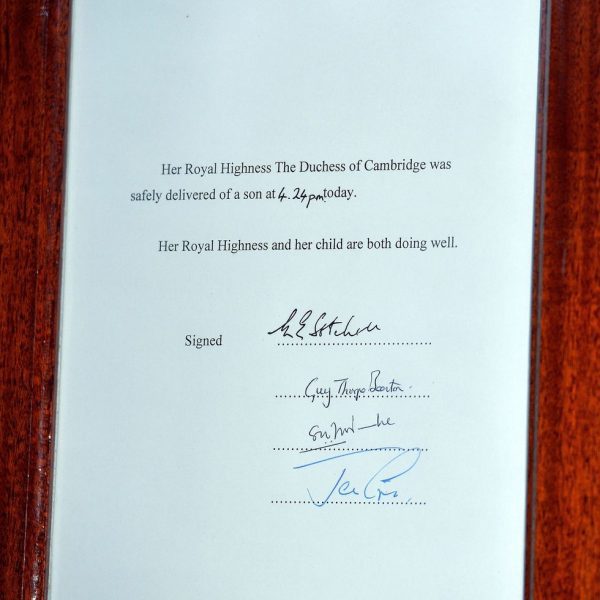 Her Royal Highness The Duchess of Cambridge was
safely delivered of a son at 4.24pm today.
Her Royal Highness and her child are both doing well.
Signed
Guy Thorpe Beeston